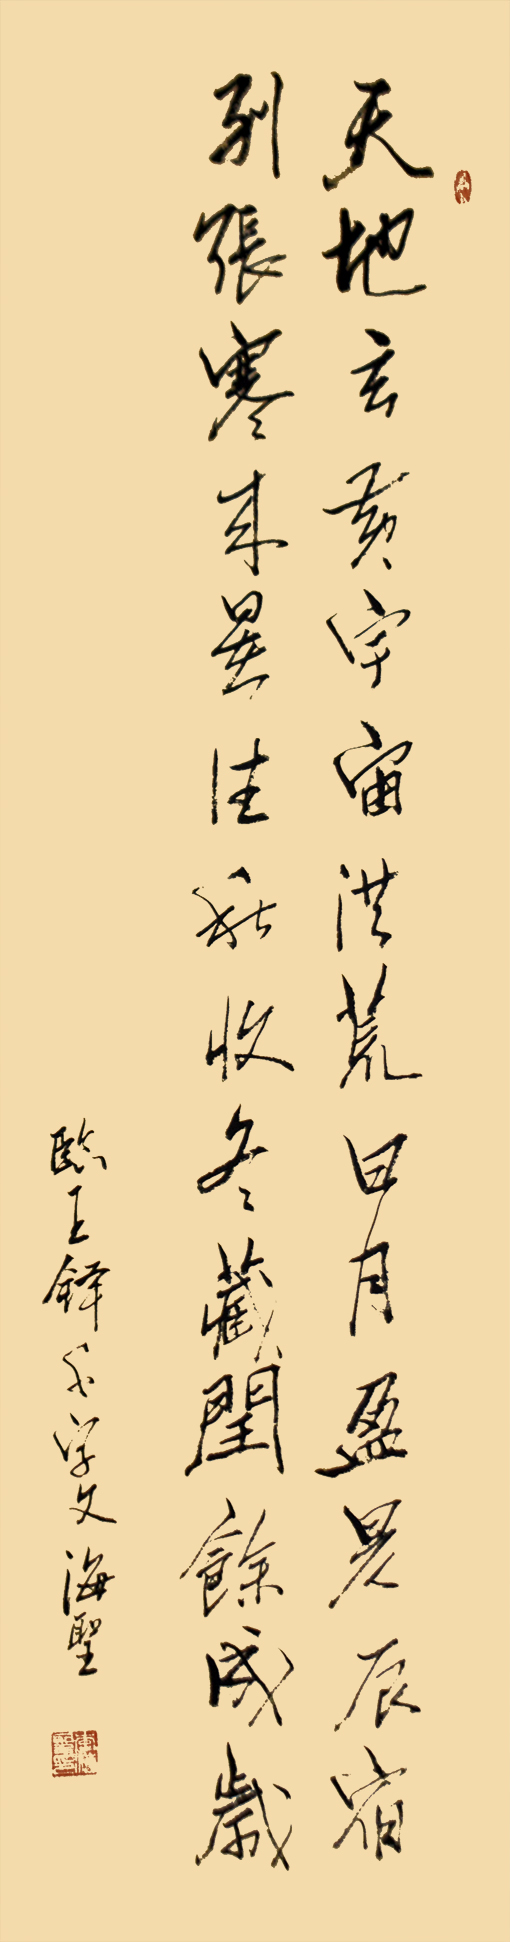 天地玄黄宇宙洪荒日月盈昃辰宿
列張寒来暑往秋收冬藏閏餘成歲
臨王鐸千字文海聖